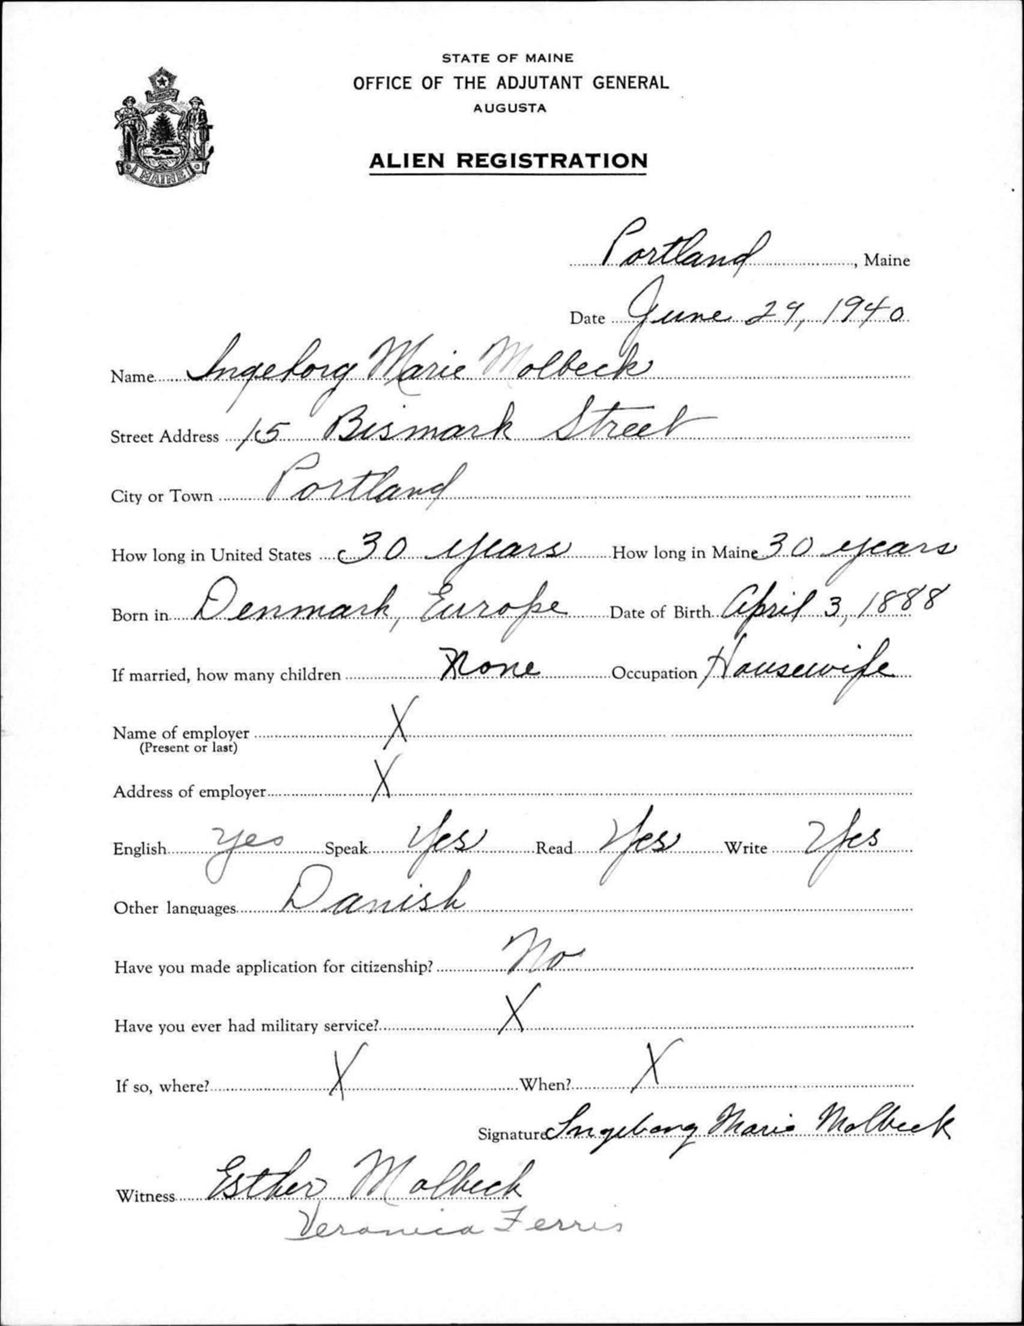 STATE OF MAINE
OFFICE OF THE ADJUTANT GENERAL
AUGUSTA
ALIEN REGISTRATION
Portland, Maine
Date June 29, 1940
Name Ingeborg Marie Molbeck
Street Address 15 Bismark Street
City or Town Portland
How long in United States 30 years How long in Maine 30 years
Born in Denmark, Europe Date of Birth April 3, 1888
If married, how many children None Occupation Housewife
Name of employer X
(Present or last)
Address of employer X
English Yes Speak Yes Read Yes Write Yes
Other languages Danish
Have you made application for citizenship? No
Have you ever had military service? X
If so, where? X When? X
Signature Ingeborg Marie Molbeck
Witness Esther Molbeck
Veronica Ferris
MAINE